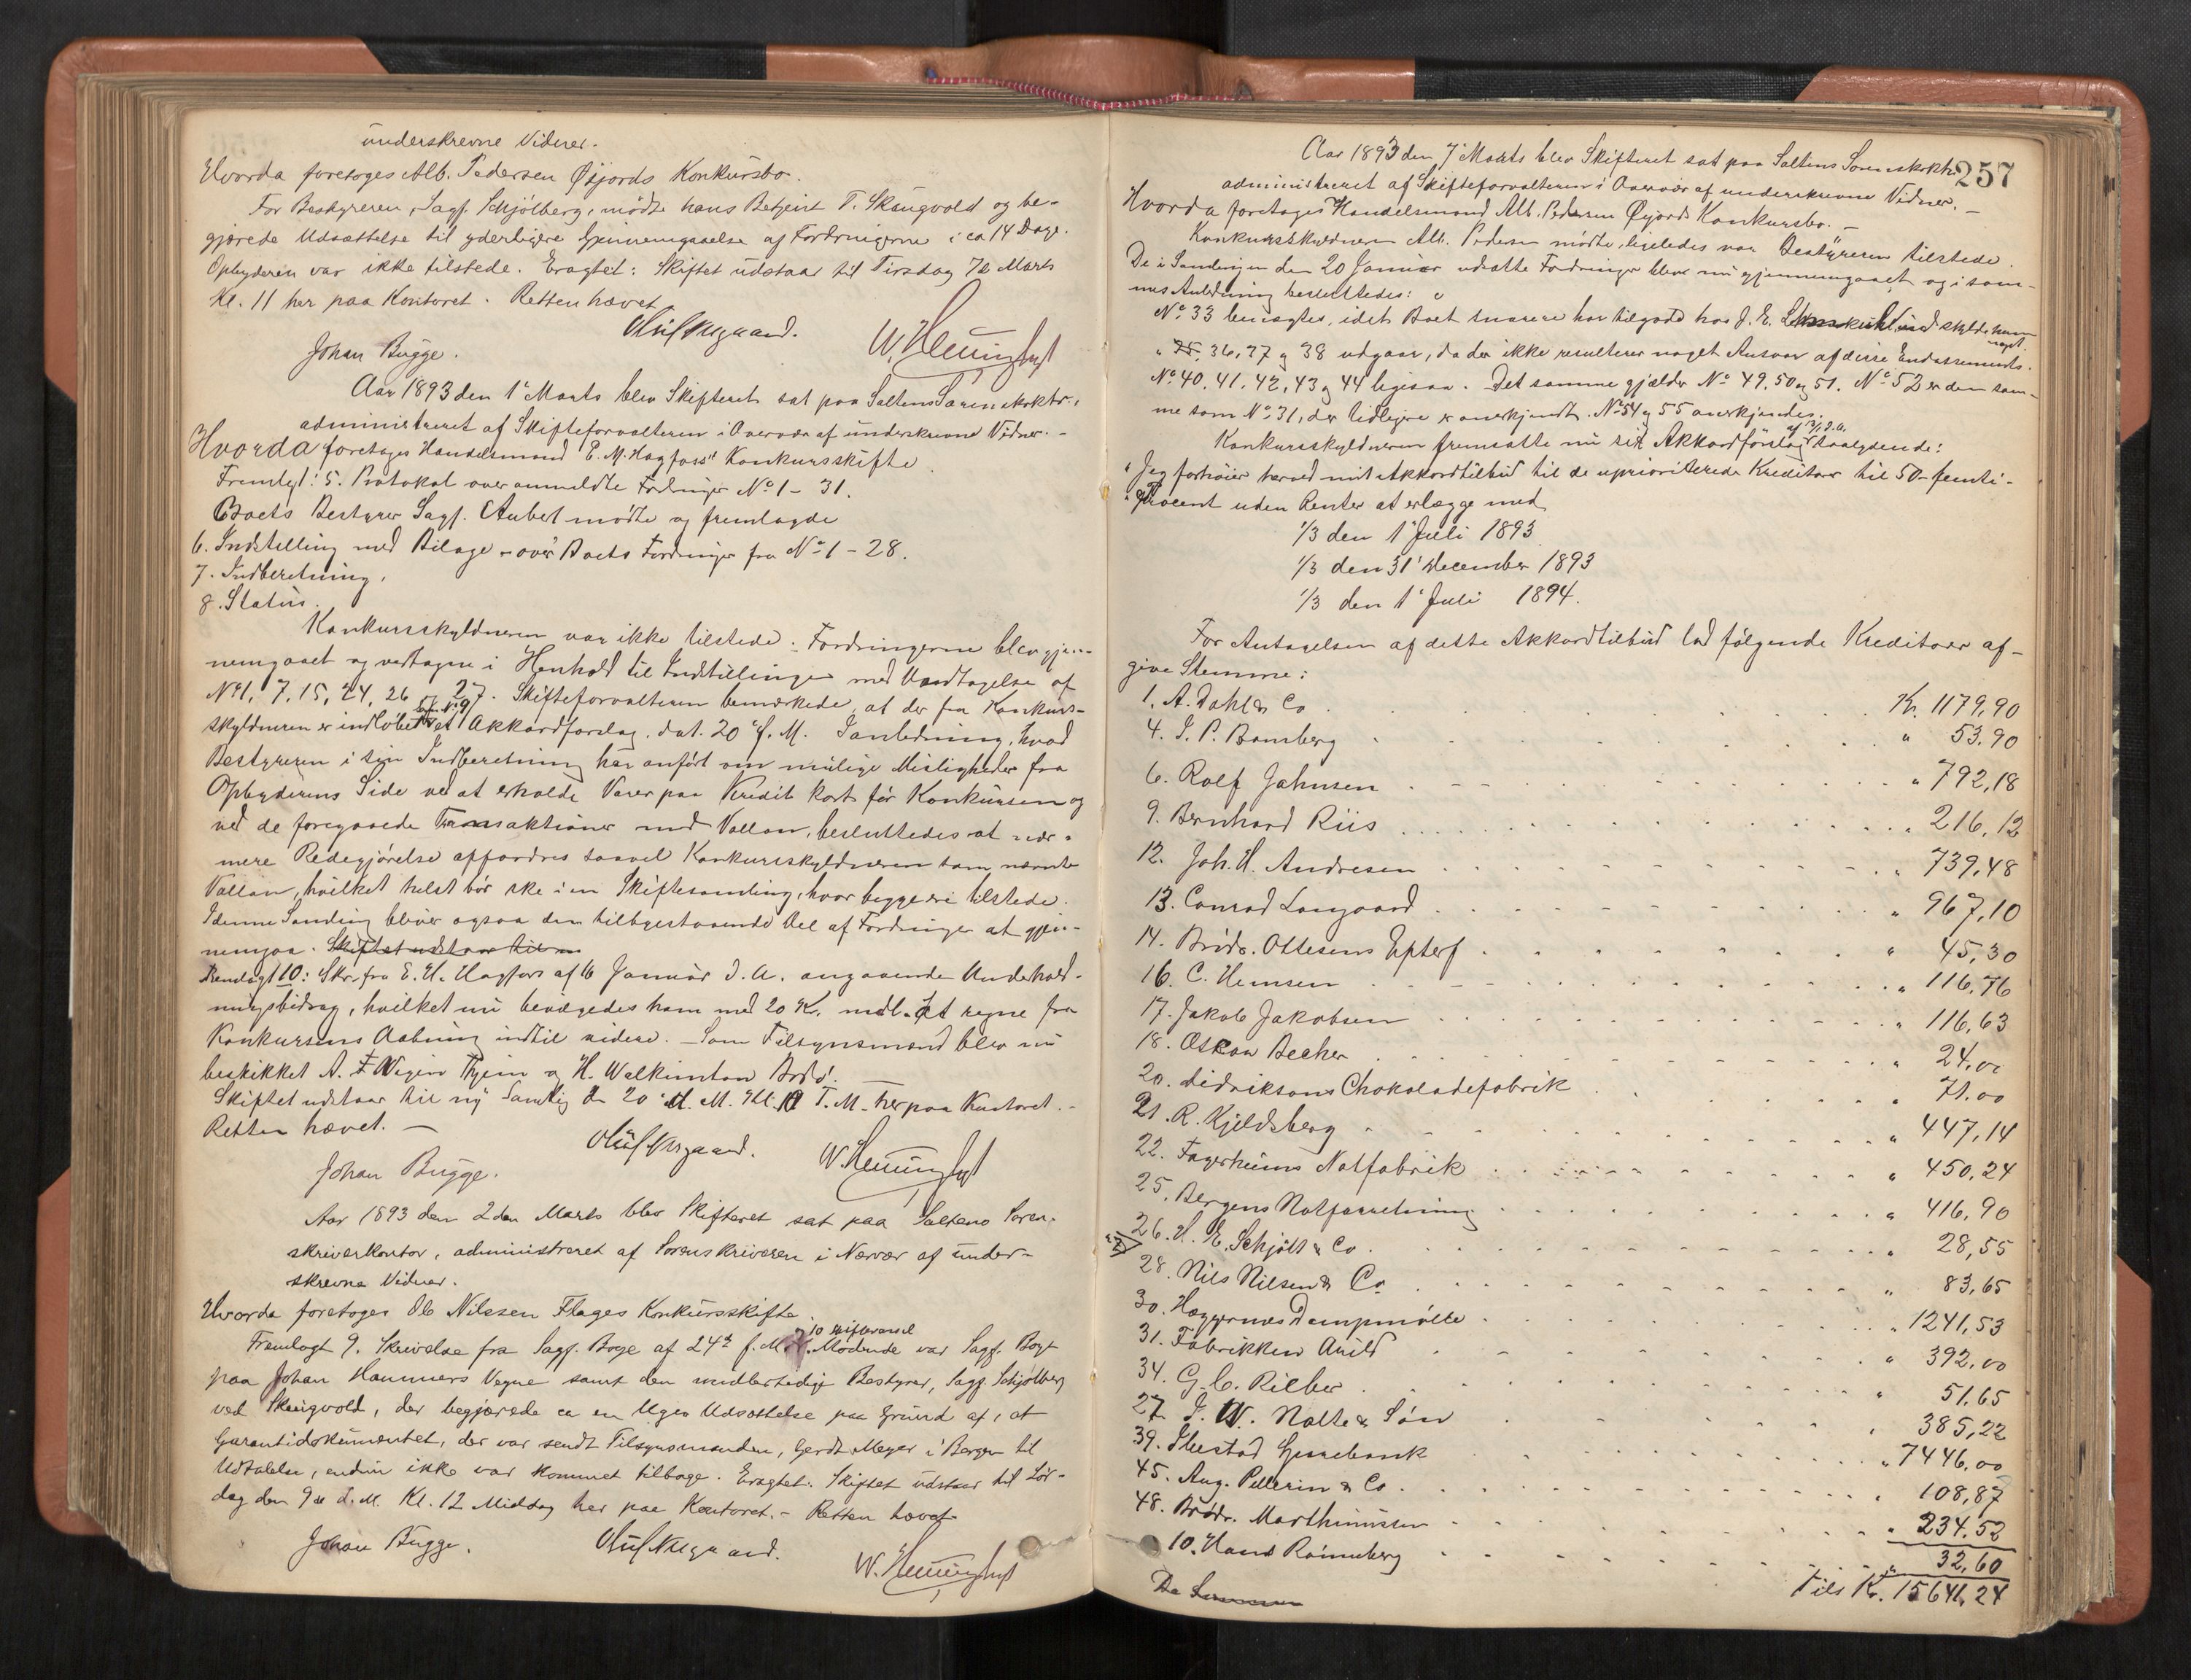 underskrevne Vidner.
Hvorda foretoges Alb. Pedersen Øijords Konkursbo.
For Bestyreren, Sagf. Schjølberg, mødte hans Betjent T. Skeugvold og be-
gjærede Udsættelse til yderligere Gjennemgaaelse af Fordringerne i ca 14 Dage.
Opbyderen var ikke tilstede. Eragtet: Skiftet udstaar til Tirsdag 7de Marts
Kl. 11 her paa Kontoret. Retten hævet
Johan Bugge.
Aar 1893 den 1ste Marts blev Skifteret sat paa Saltens Sorenskrktr.,
administreret af Skifteforvalteren i Overvær af underskrevne Vidner. -
Hvorda foretoges Handelsmand E. M. Hagfors' Konkursskifte
Fremlagt: 5. Protokol over anmeldte Fordringer No 1 - 31.
Boets Bestyrer Sagf. Aubert mødte og fremlagde
6. Indstilling med Bilage - over Boets Fordringer fra No 1 - 28.
7. Indberetning,
8. Status.
Konkursskyldneren var ikke tilstede. Fordringerne blev gjen-
nemgaaet og vedtagne i Henhold til Indstillingen med Undtagelse af
No 1, 7, 15, 24, 26 og 27. Skifteforvalteren bemærkede, at der fra Konkurs-
skyldneren er indløbet et Akkordforslag, No 9, dat. 20 f. M. I anledning, hvad
Bestyreren i sin Indberetning har anført om mulige Misligheder fra
Opbyderens Side ved at erholde Varer paa Kredit kort før Konkursen og
ved de foregaaede Transaktioner med Vollan, besluttedes at nær-
mere Redegjørelse affordres saavel Konkursskyldneren som nævnte
Vollan, hvilket helst bør ske i en Skiftesamling, hvor begge ere tilstede.
I denne Samling bliver ogsaa den tilbagestaaende Del af Fordringer at gjen-
nemgaa. Skiftet udstaar til
Fremlagt 10: Skr. fra E. M. Hagfors af 16 Januar d. A. angaaende Underhold-
ningsbidrag, hvilket nu bevilgedes ham med 20 Kr. mdl. at regne fra
Konkursens Aabning indtil videre. - Som Tilsynsmænd blev nu
beskikket A. F. Wigen Thjem og H. Walkinton Bodø.
Skiftet udstaar til ny Samling d. 20 d. M. Kl. 10 F. M. her paa Kontoret. -
Retten hævet. -
Johan Bugge.
Aar 1893 den 2den Marts blev Skifteret sat paa Saltens Soren-
skriverkontor, administreret af Sorenskriveren i Nærvær af under-
skrevne Vidner.
Hvorda foretoges Ole Nilssen Flages Konkursskifte
og 10 Skiftevarsel
Fremlagt 9. Skrivelse fra Sagf. Boye af 24de f. M. Mødende var Sagf. Boye
paa Johan Hammers Vegne samt den midlertidige Bestyrer, Sagf. Schjølberg
ved Skeugvold, der begjærede ca en Uges Udsættelse paa Grund af, at
Garantidokumentet, der var sendt Tilsynsmanden, Gerdt Meyer i Bergen til
Udtalelse, endnu ikke var kommet tilbage. Eragtet: Skiftet udstaar til Lør-
dag den 9de d. M. Kl. 12 Middag her paa Kontoret. - Retten hævet
Johan Bugge.
257
Aar 1893 den 7de Marts blev Skifteret sat paa Saltens Sorenskrktr
administreret af Skifteforvalteren i Overvær af underskrevne Vidner. -
Hvorda foretoges Handelsmand Alb. Pedersen Øyjords Konkursbo. -
Konkursskyldneren Alb. Pedersen mødte, ligeledes var Bestyreren tilstede.
De i Samlingen den 20 Januar udsatte Fordringer blev nu gjennemgaaet og i sam-
mes Anledning besluttedes:
No 33 benægtes, idet Boet snarere har tilgode hos J. E. end skylder ham
noget.
" 36, 37 og 38 udgaar, da der ikke resulterer noget Ansvar af disse Endossements.
No 40, 41, 42, 43 og 44 ligesaa. Det samme gjælder No 49, 50 og 51. No 52 er den sam-
me som No 31, der tidligere er anerkjendt. No 54 og 55 anerkjendes.
Konkursskyldneren fremsatte nu sit Akkordforslag saalydende:
"Jeg forhøier herved mit Akkordtilbud til de uprioriterede Kreditorer til 50 - femti -
"Procent uden Renter at erlægge med
1/3 den 1ste Juli 1893
1/3 den 31' December 1893
1/3 den 1ste Juli 1894.
For Antagelsen af dette Akkordtilbud lod følgende Kreditorer af-
give Stemme:
1. A. Dahl & Co . Kr. 1179,90
4. J. P. Bamberg . " 53.90
6. Rolf Jahnsen . " 792,18
9. Bernhard Riis . " 216,12
12. Joh. H. Andresen . " 739,48
13. Conrad Langaard . " 967,10
14. Brødr. Ottesens Efterf . " 45,30
16. C. Hemsen . " 116,76
17. Jakob Jakobsen . " 116,63
18. Oskar Becher . " 24,00
20. Lidriksons Chokoladefabrik . " 71.00
21. R. Kjeldsberg . " 447,14
22. Fagerheims Notfabrik . " 450,24
25. Bergens Notforretning . " 416,90
26. H. E. Schjøtt & Co . " 28,55
28. Nils Nilsen & Co . " 83,65
30. Heggrenæs Dampmølle . " 1241,53
31. Fabrikken Arild . " 392,00
34. G. C. Rieber . " 51,65
27. J. W. Nolte & Søn . " 385,22
39. Ibestad Sparebank . " 7446,00
45. Aug. Pellerin & Co . " 108,87
48. Brødr. Marthinussen . " 234,52
10. Hans Rønneberg . " 32,60
Tils Kr. 15641,24
De